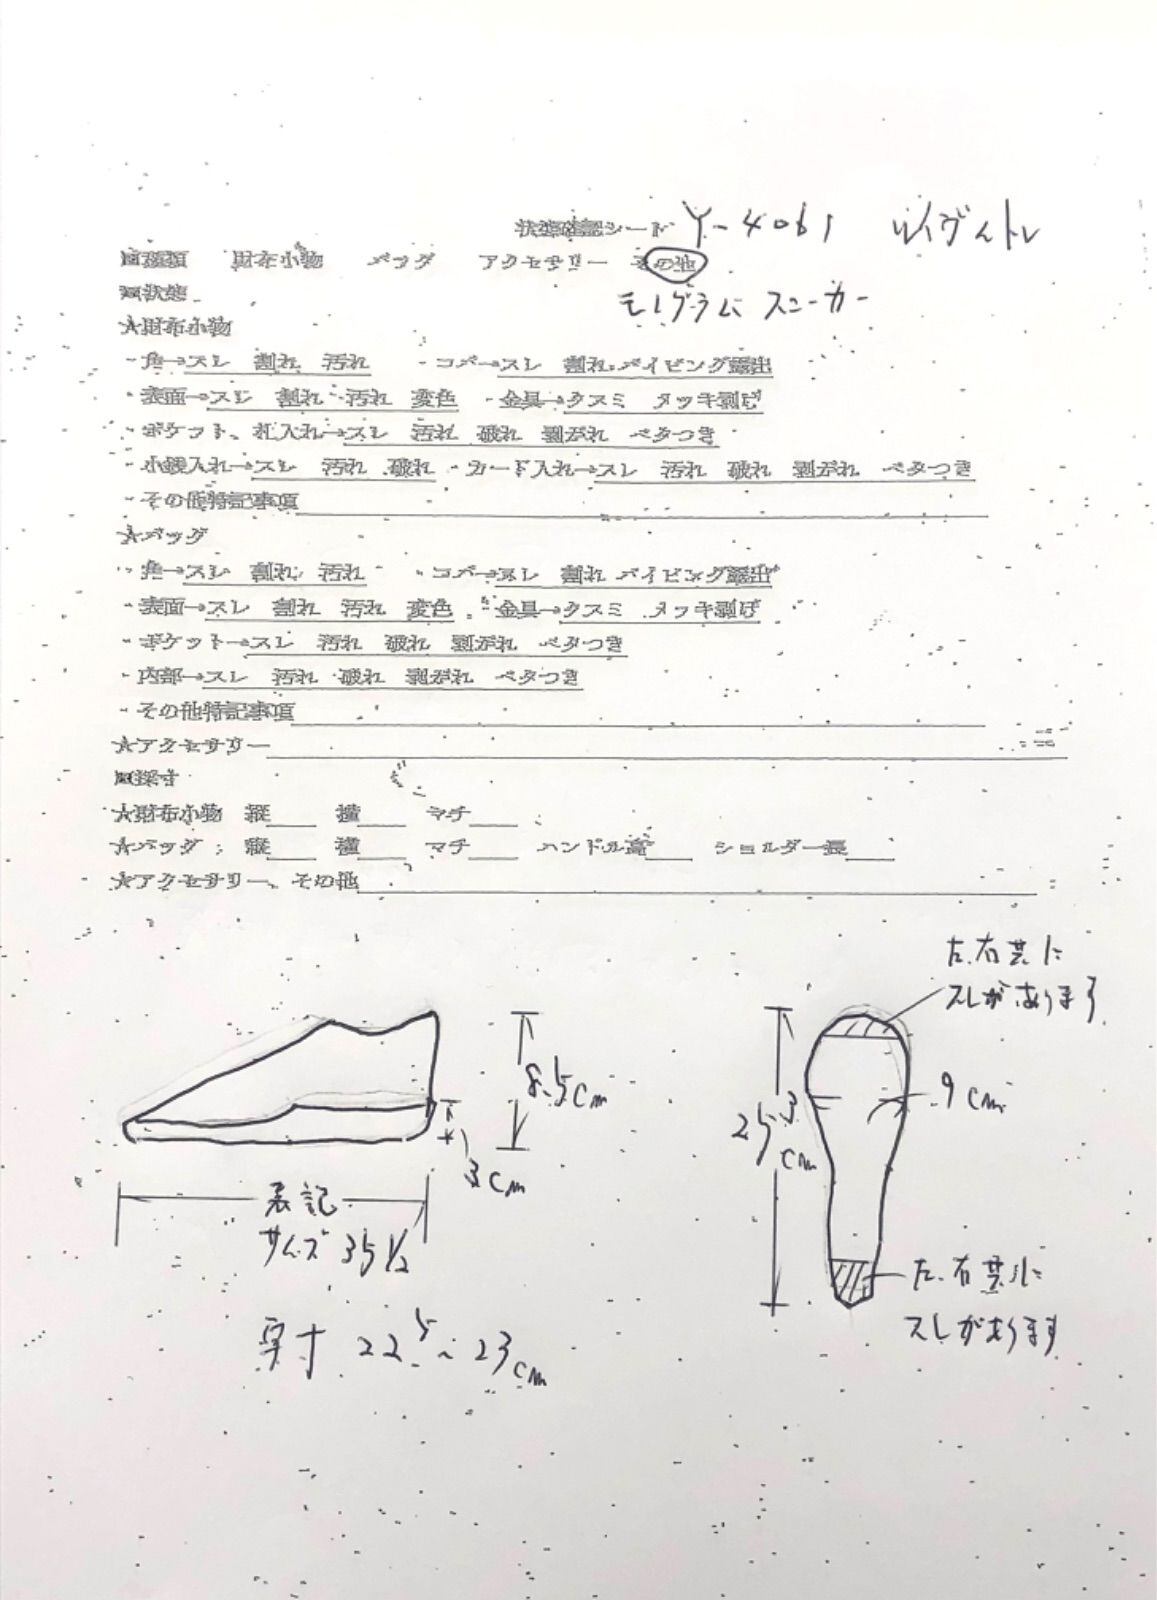 状態確認シート Y-4061 ルイヴィトン
■種類 財布小物 バッグ アクセサリー その他
■状態 モノグラム スニーカー
★財布小物
・角→スレ 割れ 汚れ ・コバ→スレ 割れ パイピング露出
・表面→スレ 割れ 汚れ 変色 ・金具→クスミ メッキ剥げ
・ポケット、札入れ→スレ 汚れ 破れ 剥がれ ベタつき
・小銭入れ→スレ 汚れ 破れ ・カード入れ→スレ 汚れ 破れ 剥がれ ベタつき
・その他特記事項
★バッグ
・角→スレ 割れ 汚れ ・コバ→スレ 割れ パイピング露出
・表面→スレ 割れ 汚れ 変色 ・金具→クスミ メッキ剥げ
・ポケット→スレ 汚れ 破れ 剥がれ ベタつき
・内部→スレ 汚れ 破れ 剥がれ ベタつき
・その他特記事項
★アクセサリー
■採寸
★財布小物 縦 横 マチ
★バッグ 縦 横 マチ ハンドル高 ショルダー長
★アクセサリー、その他
左.右共に
スレがあります
8.5cm
3cm
表記
サイズ 35 1/2
実寸 22.5~23cm
25.3cm
9cm
左.右共に
スレがあります